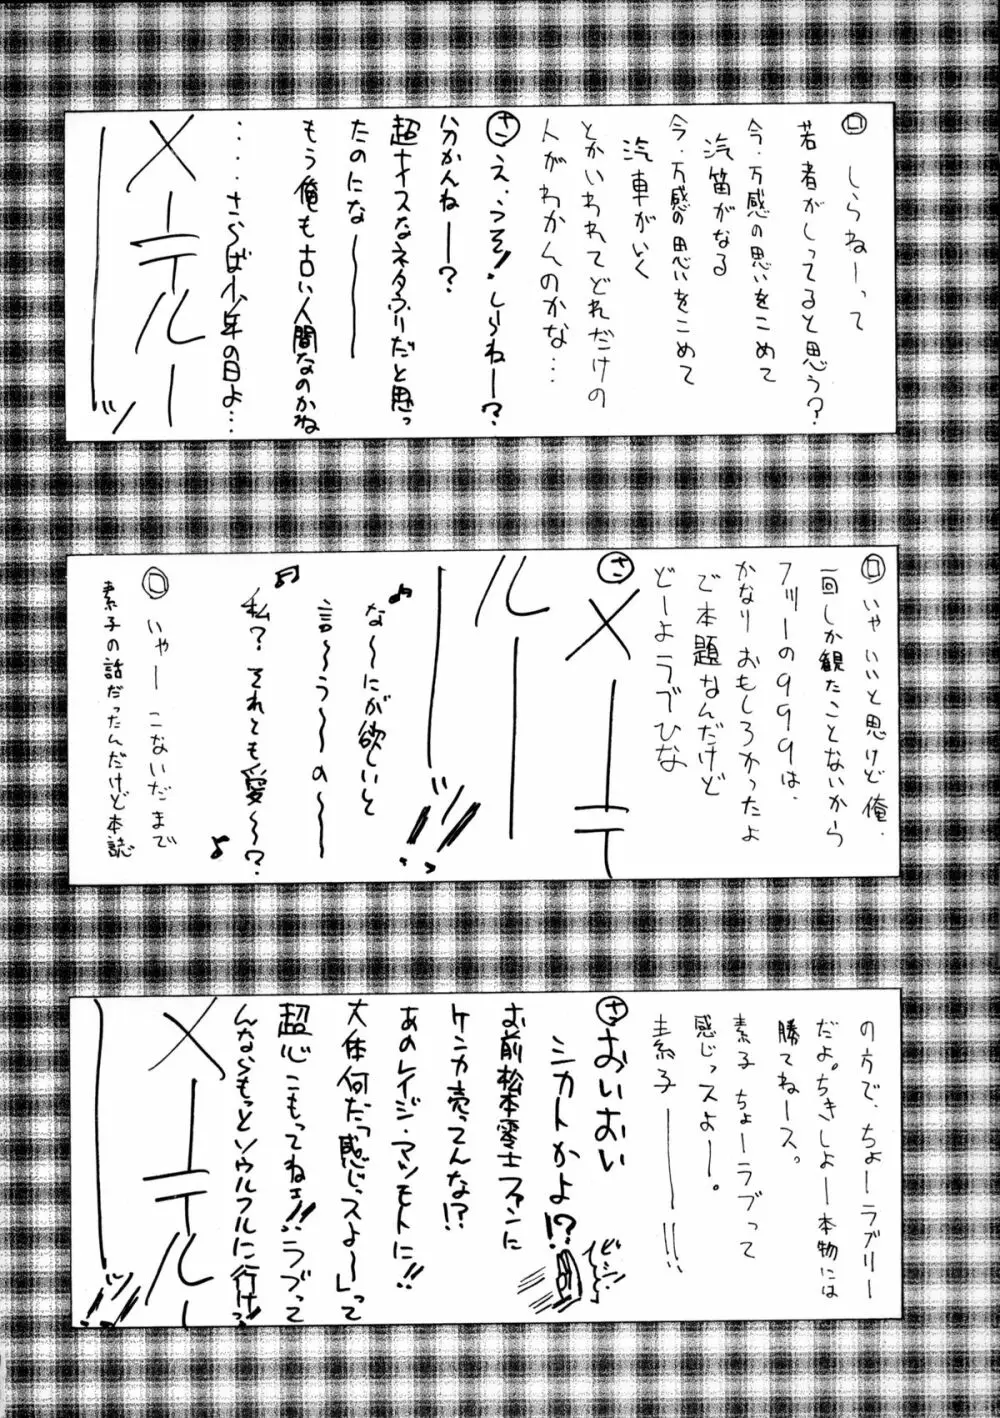 ロ しらねーって
若者がしってると思う?
今・万感の思いをこめて
汽笛がなる
今・万感の思いをこめて
汽車がいく
とかいわれてどれだけの
人がわかんのかな…
さ え、うそ!しらねー?
分かんねー?
超ナイスなネタふりだと思っ
たのにな〜
もう俺も古い人間なのかね
・・・・さらば少年の日よ…
メーテルー
ッ
ロ いや いいと思けど俺、
一回しか観たことないから
フツーの999は、
かなりおもしろかったよ
で本題なんだけど
どーよラブひな
さ メーテ
ルー
ッ!!
な〜にが欲しいと
言〜う〜の〜
私? それとも愛〜?
ロ いやー こないだまで
素子の話だったんだけど本誌
の方で、ちょーラブリー
だよ。ちきしょー本物には
勝てねース。
素子 ちょーラブって
感じっスよー。
素子ー!!
さ おいおい
シカトかよ!?
ビシッ
お前松本零士ファンに
ケンカ売ってんな!?
あのレイジ・マツモトに!!
大体何だ「感じっスよ〜」って
超心こもってねェ!!ラブって
んならもっとソウルフルに行けっ!!
メーテルー
ッ!!